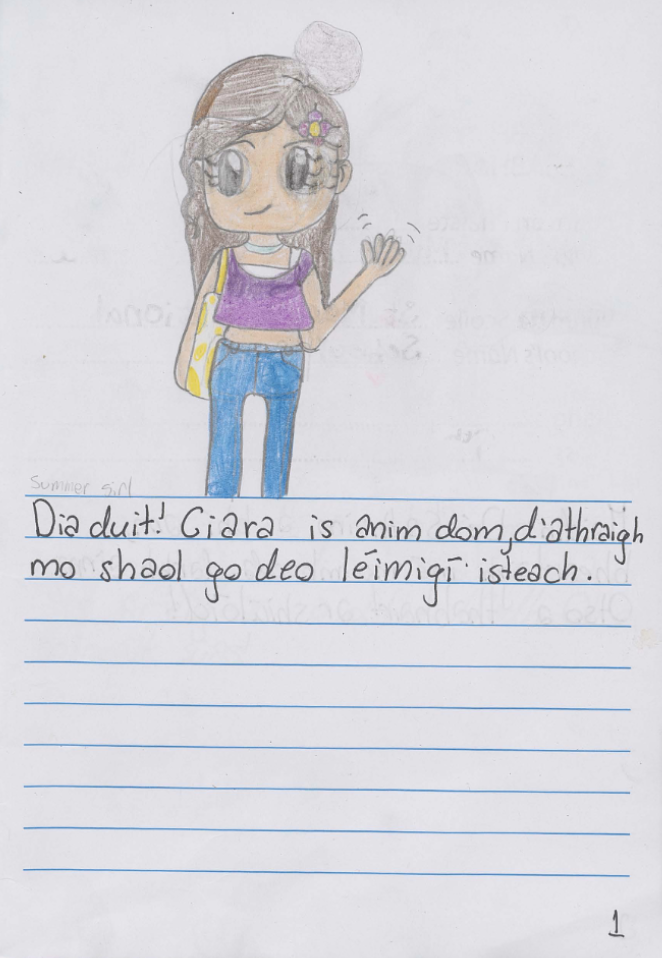 Summer girl
Dia duit! Ciara is ainm dom, d'athraigh
mo shaol go deo léimigí isteach.
1